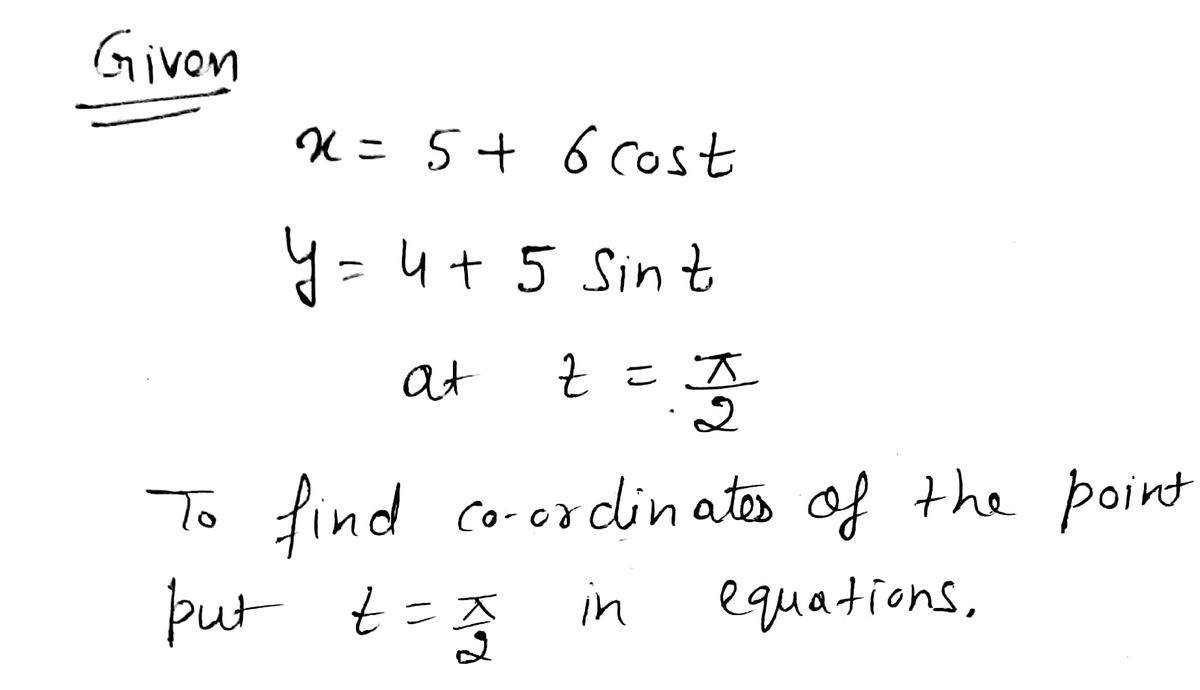 Given
x = 5 + 6 cost
y = 4 + 5 sin t
at t = π/2
To find co-ordinates of the point
put t = π/2 in equations.